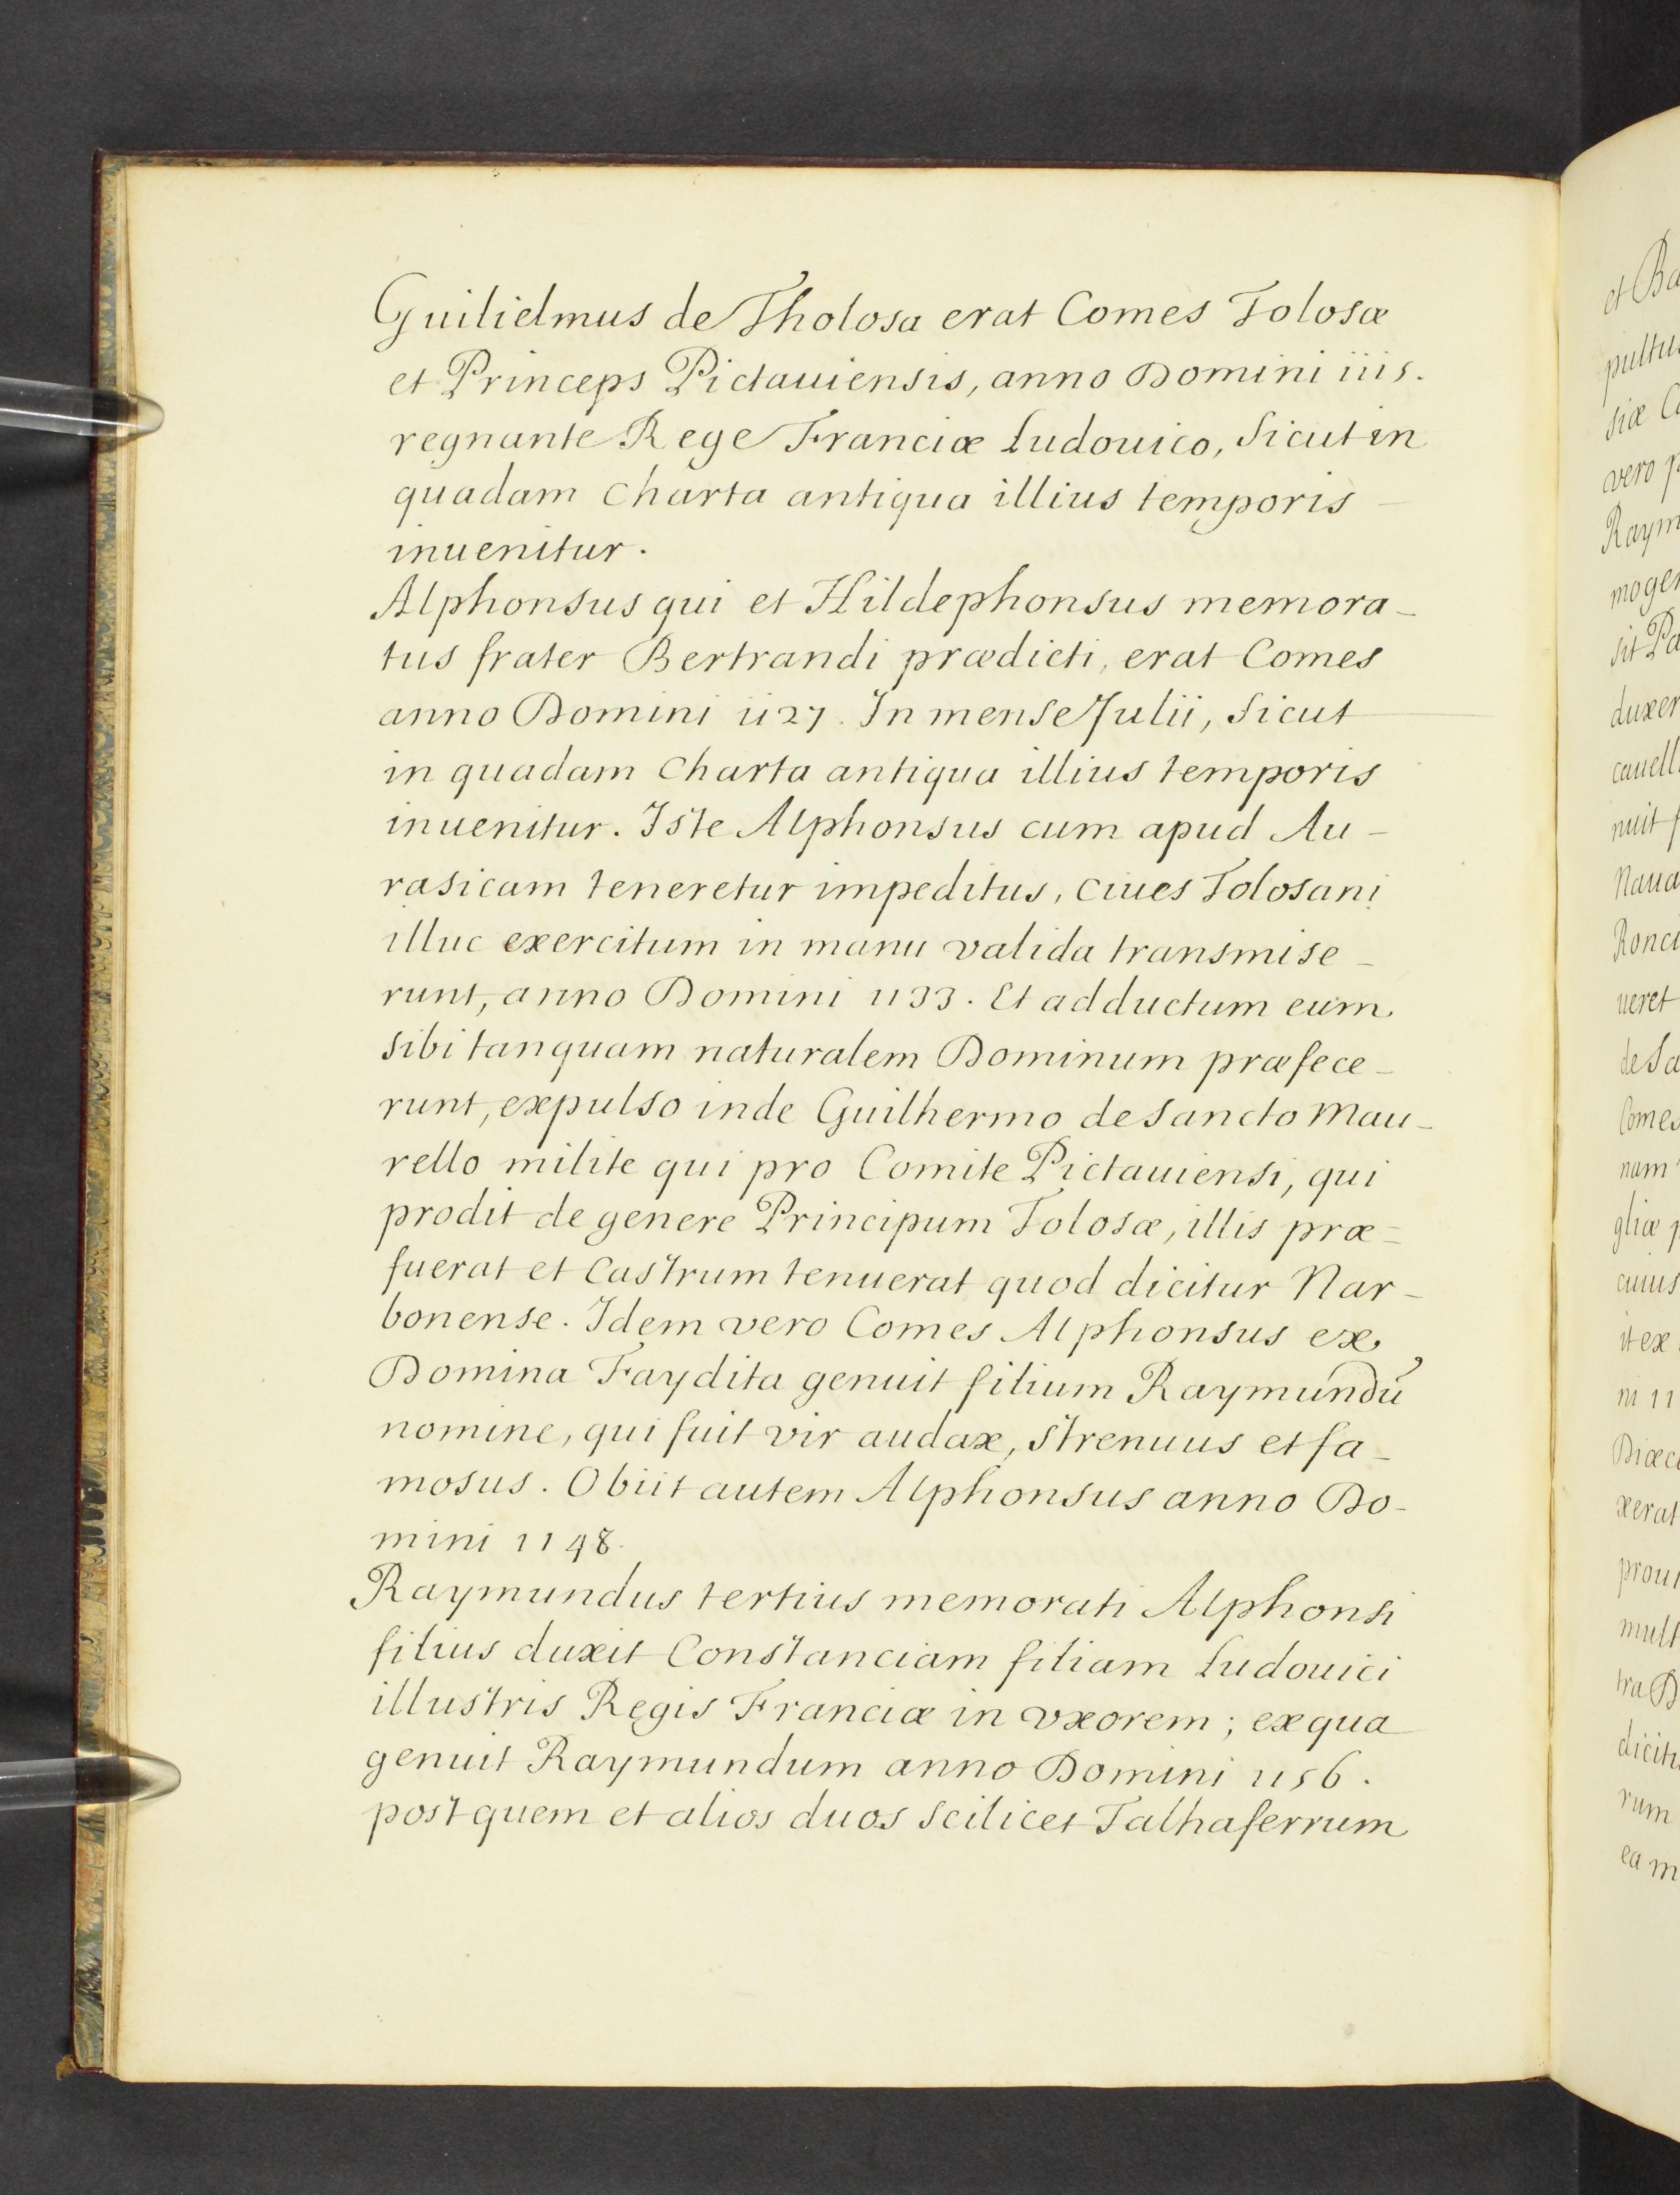 Guilielmus de Tholosa erat Comes Tolosæ
et Princeps Pictauiensis, anno Domini 1115.
regnante Rege Franciæ Ludouico, sicut in
quadam Charta antiqua illius temporis
inuenitur.
Alphonsus qui et Hildephonsus memora-
tus frater Bertrandi prædicti, erat Comes
anno Domini 1127. In mense Julii, sicut
in quadam Charta antiqua illius temporis
inuenitur. Iste Alphonsus cum apud Au-
rasicam teneretur impeditus, ciues Tolosani
illuc exercitum in manu valida transmise-
runt, anno Domini 1133. Et adductum eum
sibi tanquam naturalem Dominum præfece-
runt, expulso inde Guilhermo de Sancto Mau-
rello milite qui pro Comite Pictauiensi, qui
prodit de genere Principum Tolosæ, illis præ-
fuerat et Castrum tenuerat quod dicitur Nar-
bonense. Idem vero Comes Alphonsus ex
Domina Faydita genuit filium Raymundū
nomine, qui fuit vir audax, strenuus et fa-
mosus. Obiit autem Alphonsus anno Do-
mini 1148.
Raymundus tertius memorati Alphonsi
filius duxit Constanciam filiam Ludouici
illustris Regis Franciæ in vxorem; ex qua
genuit Raymundum anno Domini 1156.
post quem et alios duos scilicet Talhaferrum
et Ba
pultus
siæ C
vero p
Raym
moger
sit Pa
duxer
cauell
nuit f
Naua
Ronci
ueret
de Sa
Comes
nam
gliæ p
cuius
it ex
ni 11
Diœce
xerat
proui
mult
tra D
dicitu
rum
ea m